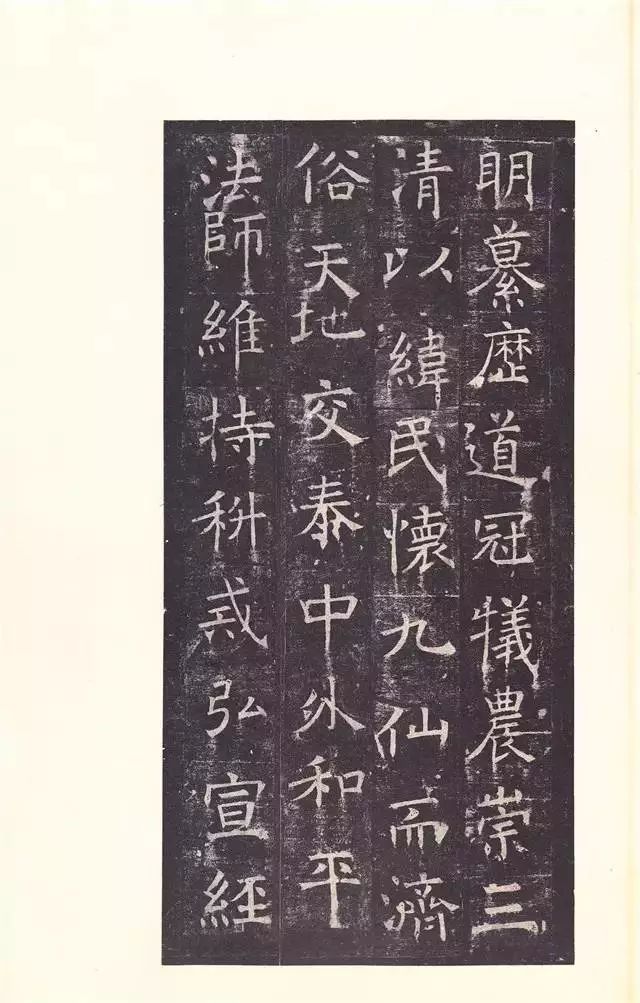 明纂歷道冠犠農崇三
清以緯民懷九仙而濟
俗天地交泰中外和平
法師維持科戒弘宣經